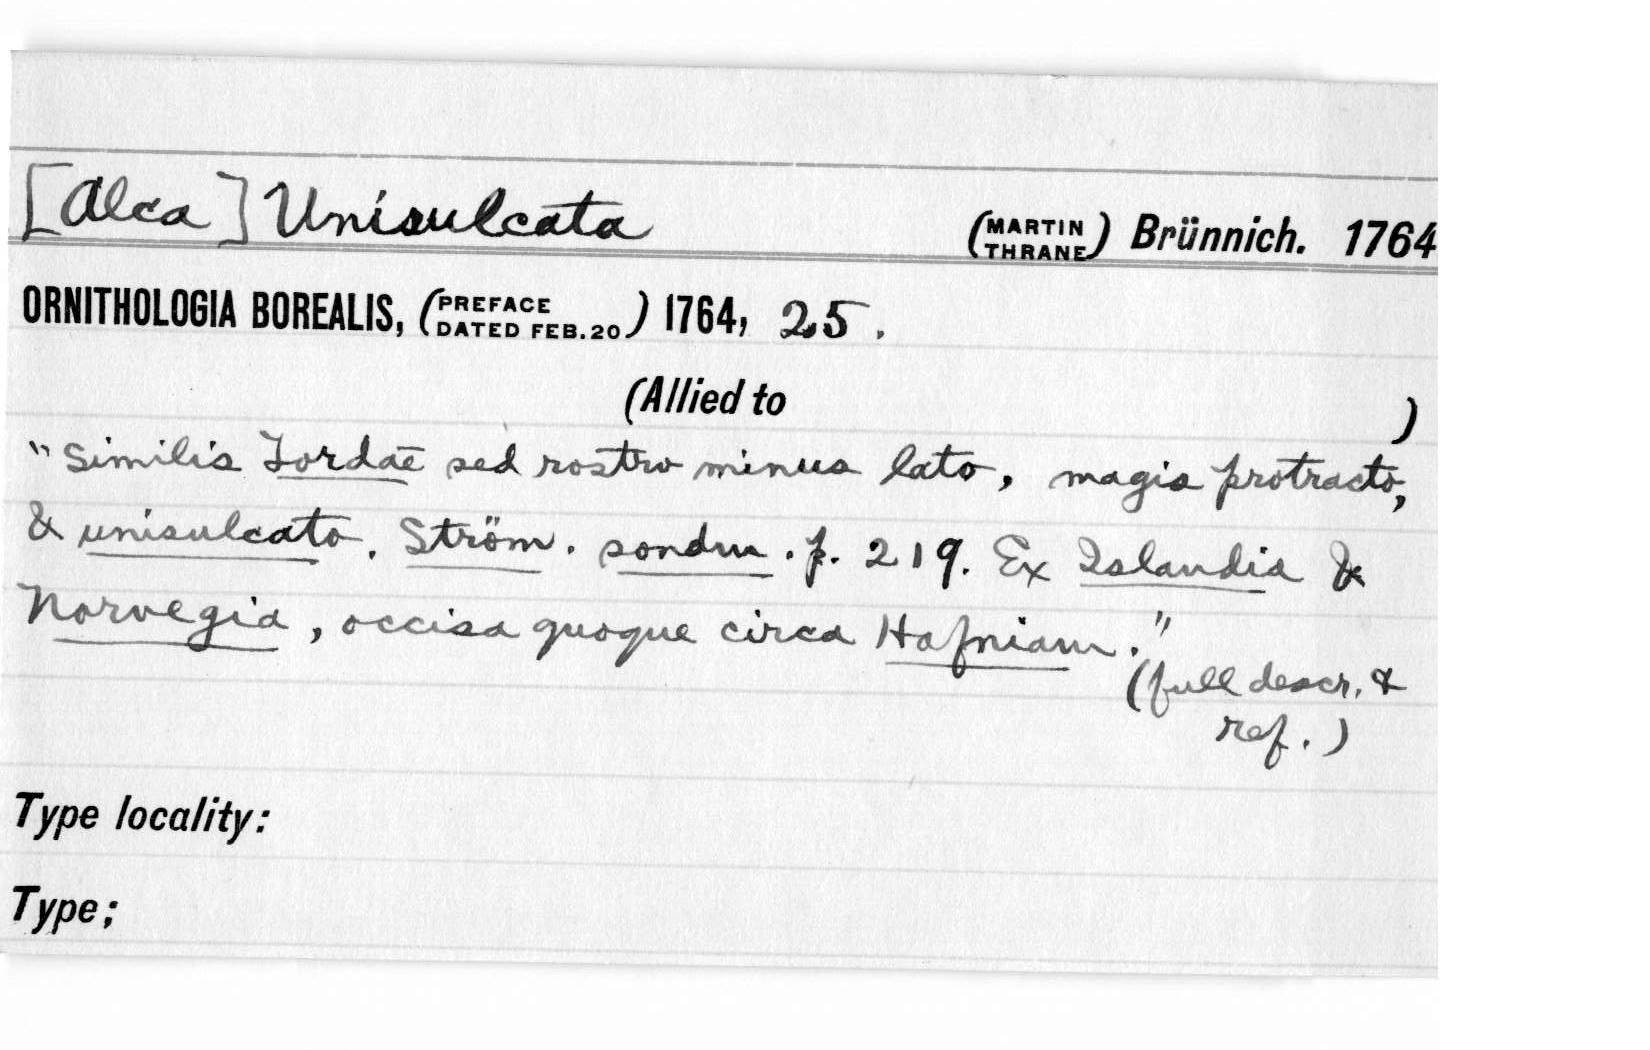 [Alca] Unisulcata (MARTIN THRANE) Brünnich. 1764
ORNITHOLOGIA BOREALIS, (PREFACE DATED FEB. 20) 1764, 25.
(Allied to )
"Similis Tordae sed rostro minus lato, magis protracto,
& unisulcato. Ström. sondm. p. 219. Ex Islandia &
Norvegia, occisa quoque circa Hafniam."
(full descr. &
ref.)
Type locality:
Type;